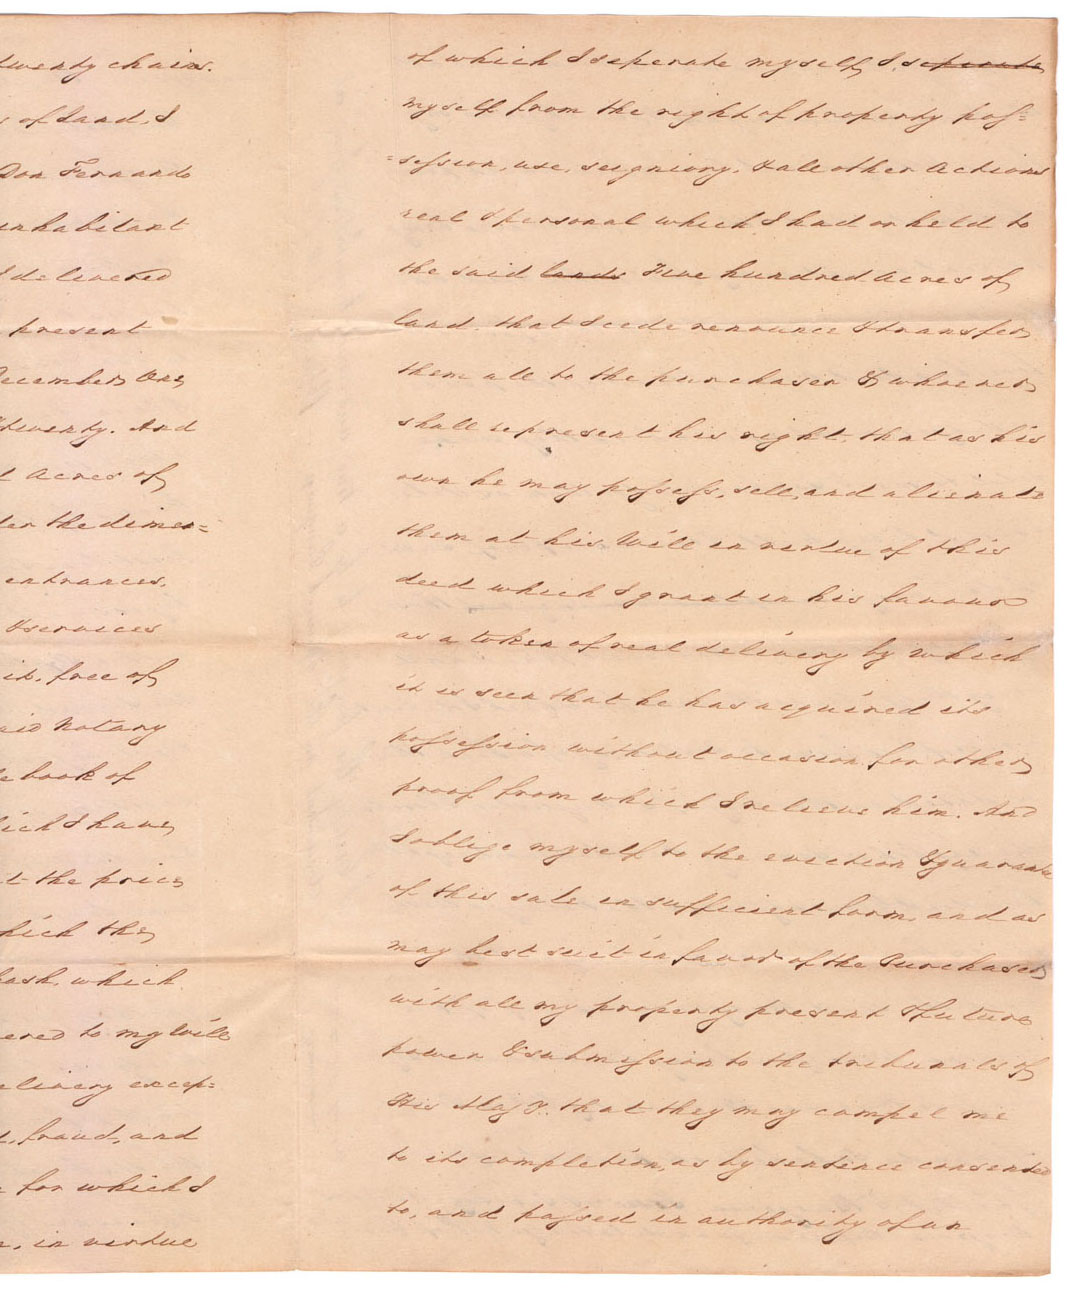 twenty chains.
s of land, I
Don Fernando
inhabitant
I delivered
present
December One
& twenty. And
t Acres of
der the dimen=
entrances,
& services
it, free of
said Notary
e book of
hich I have
t the price
which the
Cash, which
ered to my Will
elivery excep=
t, fraud, and
for which I
n, in virtue
of which I seperate myself, I seperate
myself from the right of property pos=
=session, use, seigniory, & all other Actions
real & personal which I had or held to
the said lands Five hundred Acres of
land. that I cede renounce & transfer
them all to the purchaser & whoever
shall represent his right, that as his
own he may possess, sell, and alienate
them at his Will in virtue of this
deed which I grant in his favour
as a token of real delivery by which
it is seen that he has acquired its
possession without occasion for other
proof from which I relieve him. And
I oblige myself to the eviction & guarantee
of this sale in sufficient form, and as
may best suit in favor of the Purchaser
with all my property present & future
power & submission to the tribunals of
His Majy. that they may compel me
to its completion, as by sentence consented
to, and passed in authority of an